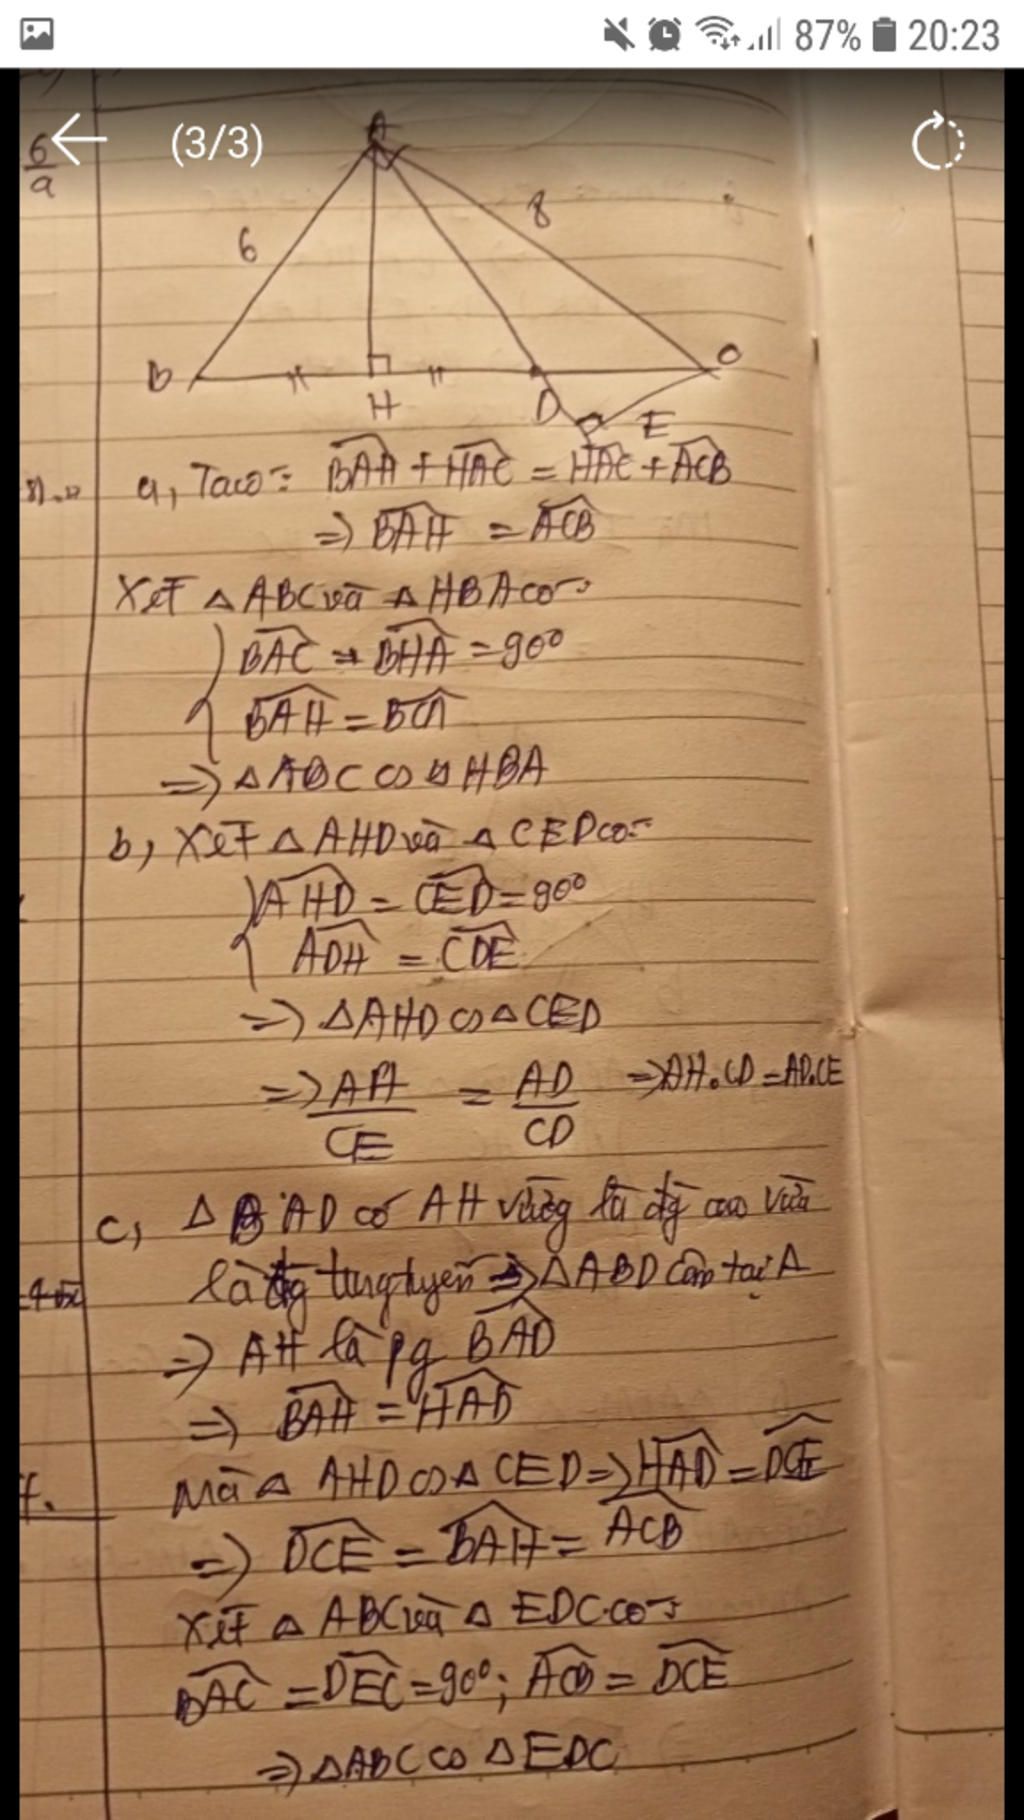 87% 20:23
(3/3)
6
a
A
6
8
B
H
D
C
E
a, Taco: BAH + HAC = HAC + ACB
=> BAH = ACB
Xét △ ABC và △ HBA có:
BAC = BHA = 90°
BAH = BCA
=> △ ABC ∽ △ HBA
b, Xét △ AHD và △ CED có:
AHD = CED = 90°
ADH = CDE
=> △AHD ∽ △ CED
=> AH / CE = AD / CD => AH.CD = AD.CE
c, △ BAD có AH là đg cao vừa
là đg tung tuyến => △ABD cân tại A
=> AH là pg BAD
=> BAH = HAD
Mà △ AHD ∽ △ CED => HAD = DCE
=> DCE = BAH = ACB
Xét △ ABC và △ EDC có:
BAC = DEC = 90°; ACB = DCE
=> △ABC ∽ △EDC